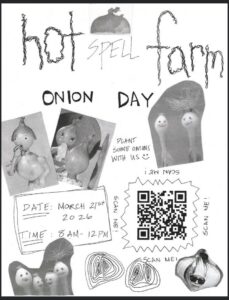 hot SPELL farm
ONION DAY
PLANT
SOME ONIONS
WITH US
SCAN ME!
SCAN ME!
DATE: MARCH 21ST
2026
TIME: 8AM-12PM
SCAN ME!
SCAN ME!